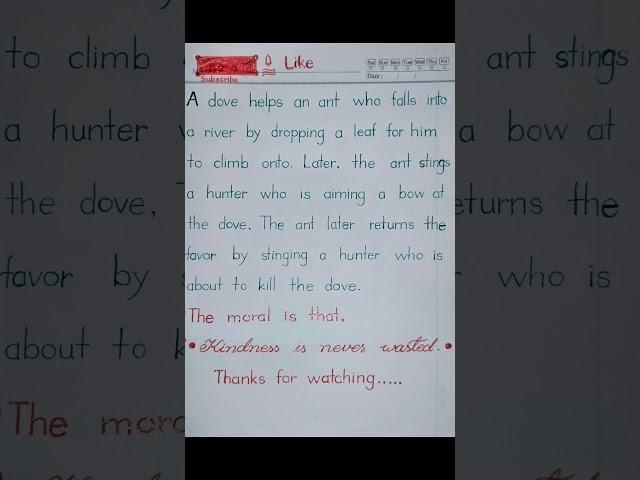 Subscribe
Like
Sat Sun Mon Tue Wed Thu Fri
Date : / /
A dove helps an ant who falls into
a river by dropping a leaf for him
to climb onto. Later, the ant stings
a hunter who is aiming a bow at
the dove. The ant later returns the
favor by stinging a hunter who is
about to kill the dove.
The moral is that,
• Kindness is never wasted. •
Thanks for watching.....